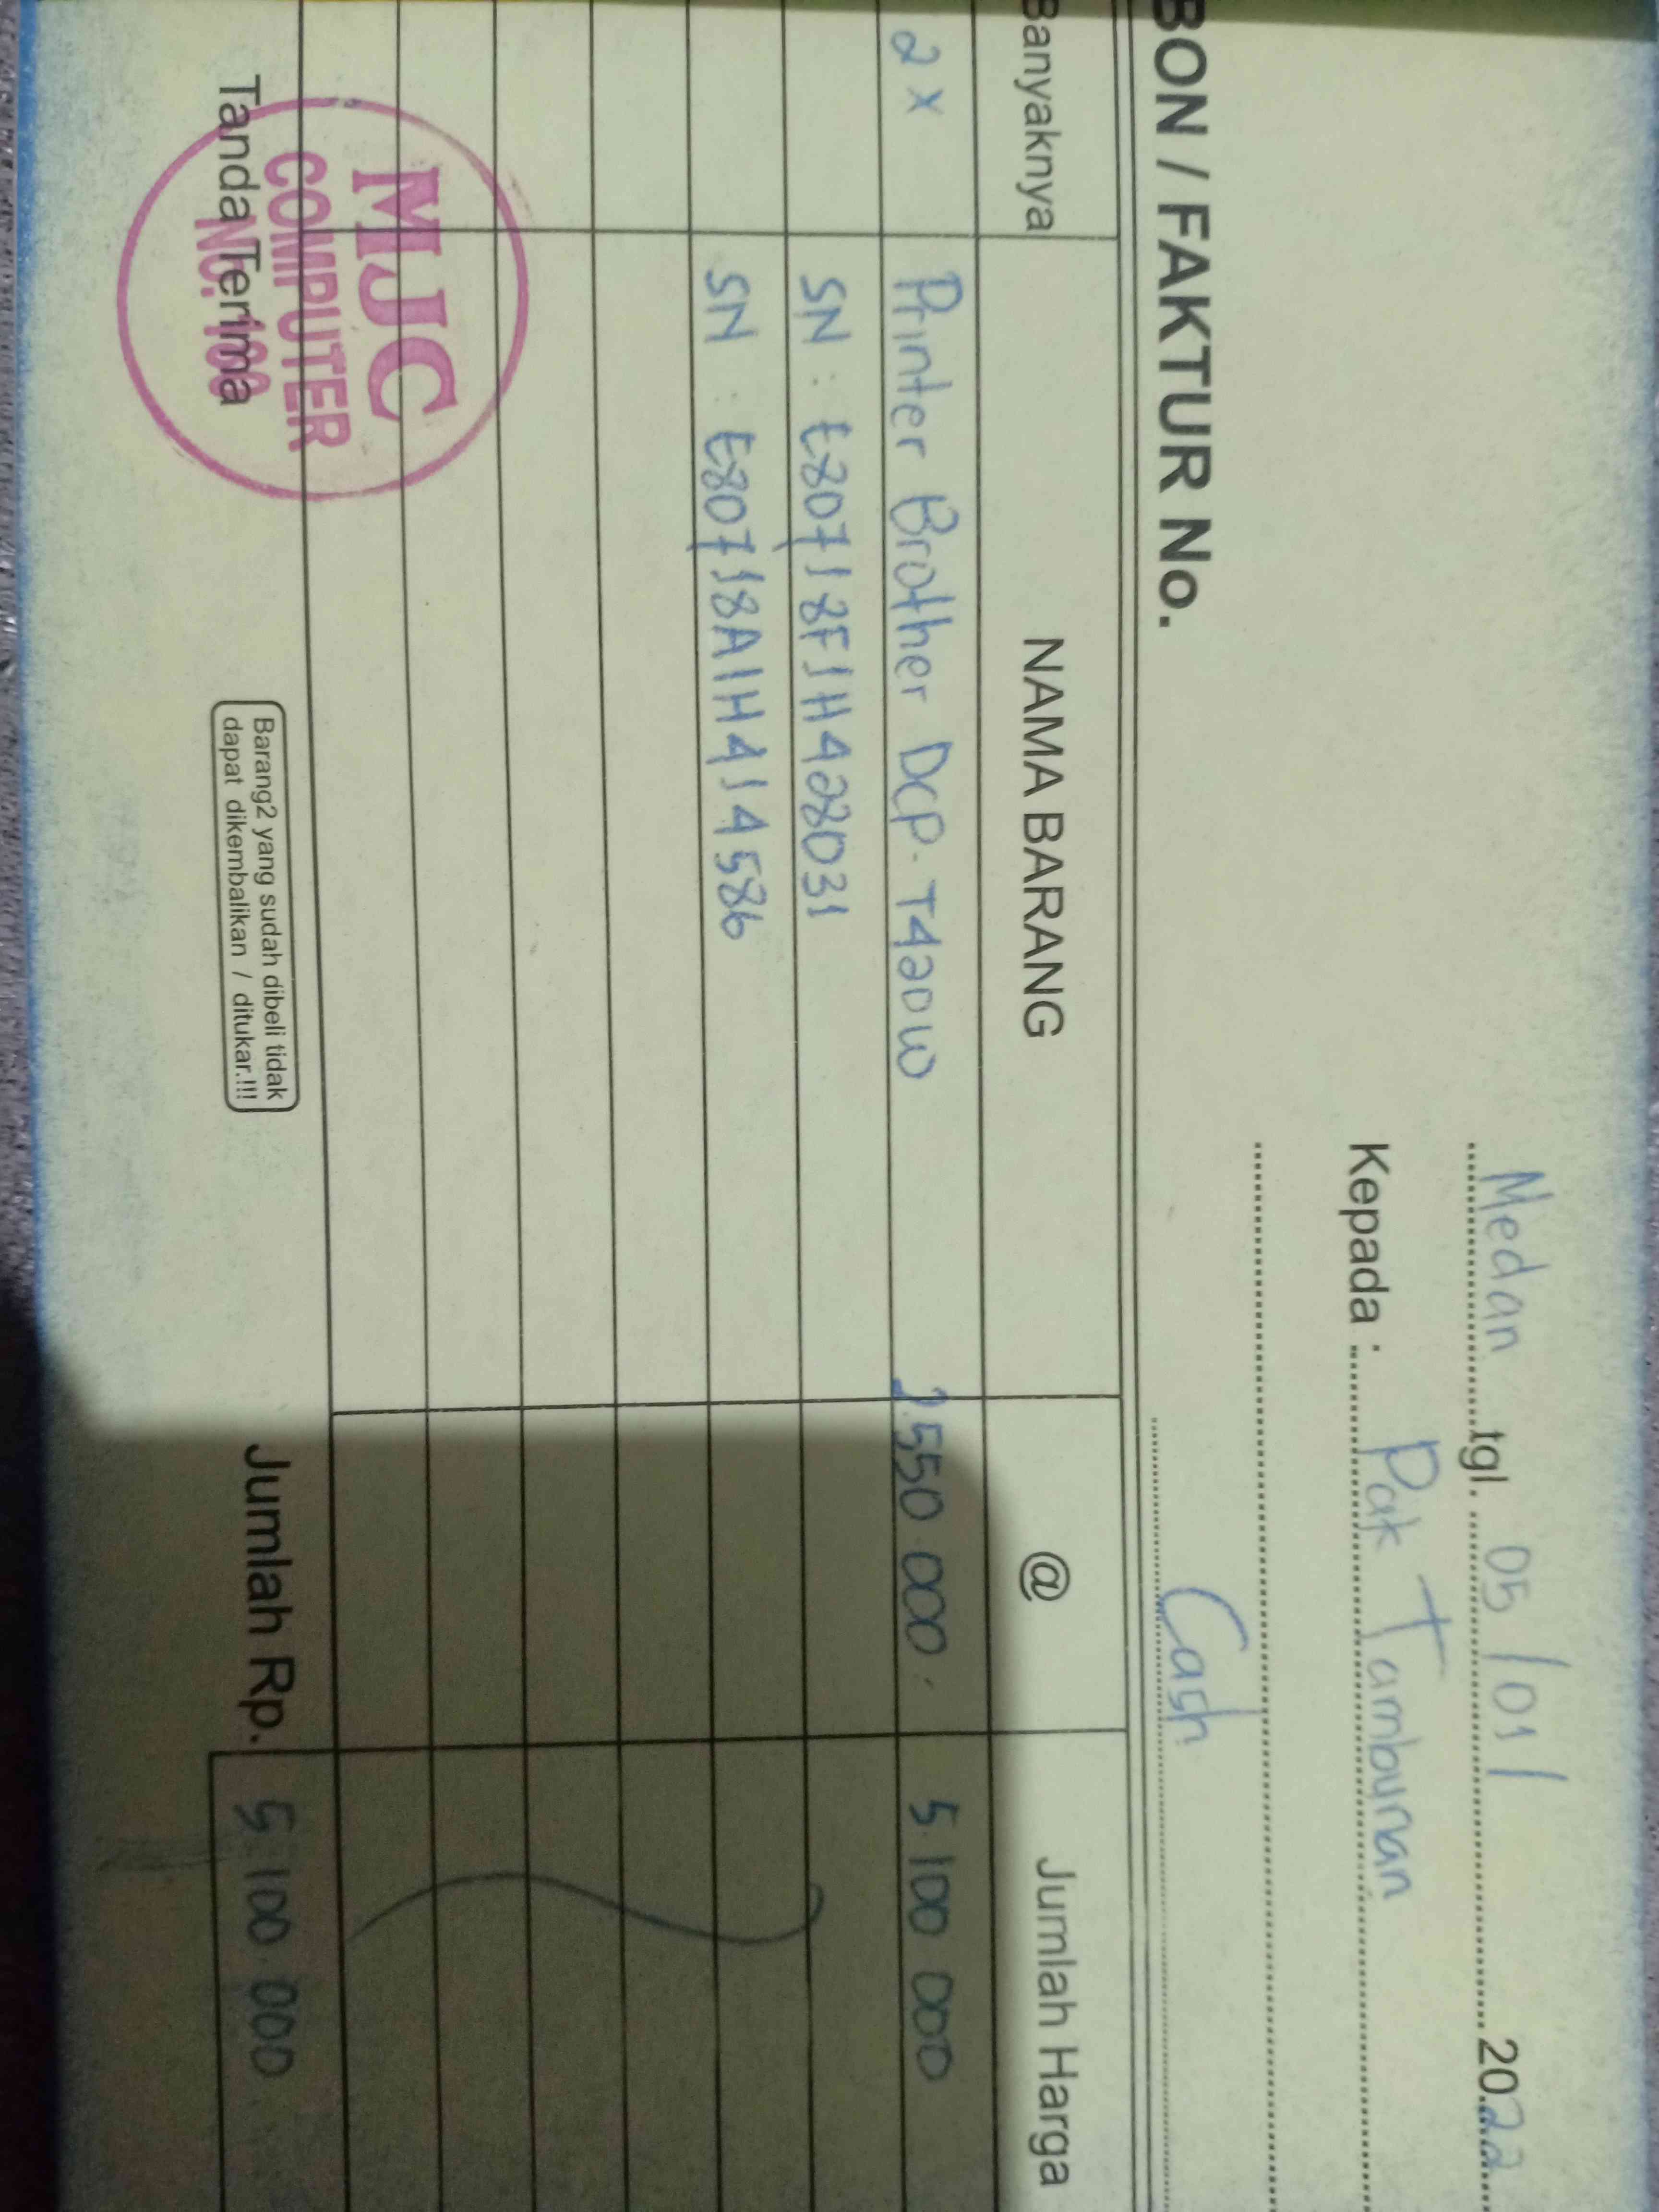 Medan tgl. 05/01/ 2022
Kepada : Pak Tambunan
Cash
BON / FAKTUR No.
Banyaknya NAMA BARANG @ Jumlah Harga
2 x Printer Brother DCP-T420W 2.550.000. 5.100.000
SN : E80718F1H428031
SN : E80718A1H414586
Tanda Terima
MJC
COMPUTER
Barang2 yang sudah dibeli tidak
dapat dikembalikan / ditukar.!!!
Jumlah Rp. 5.100.000